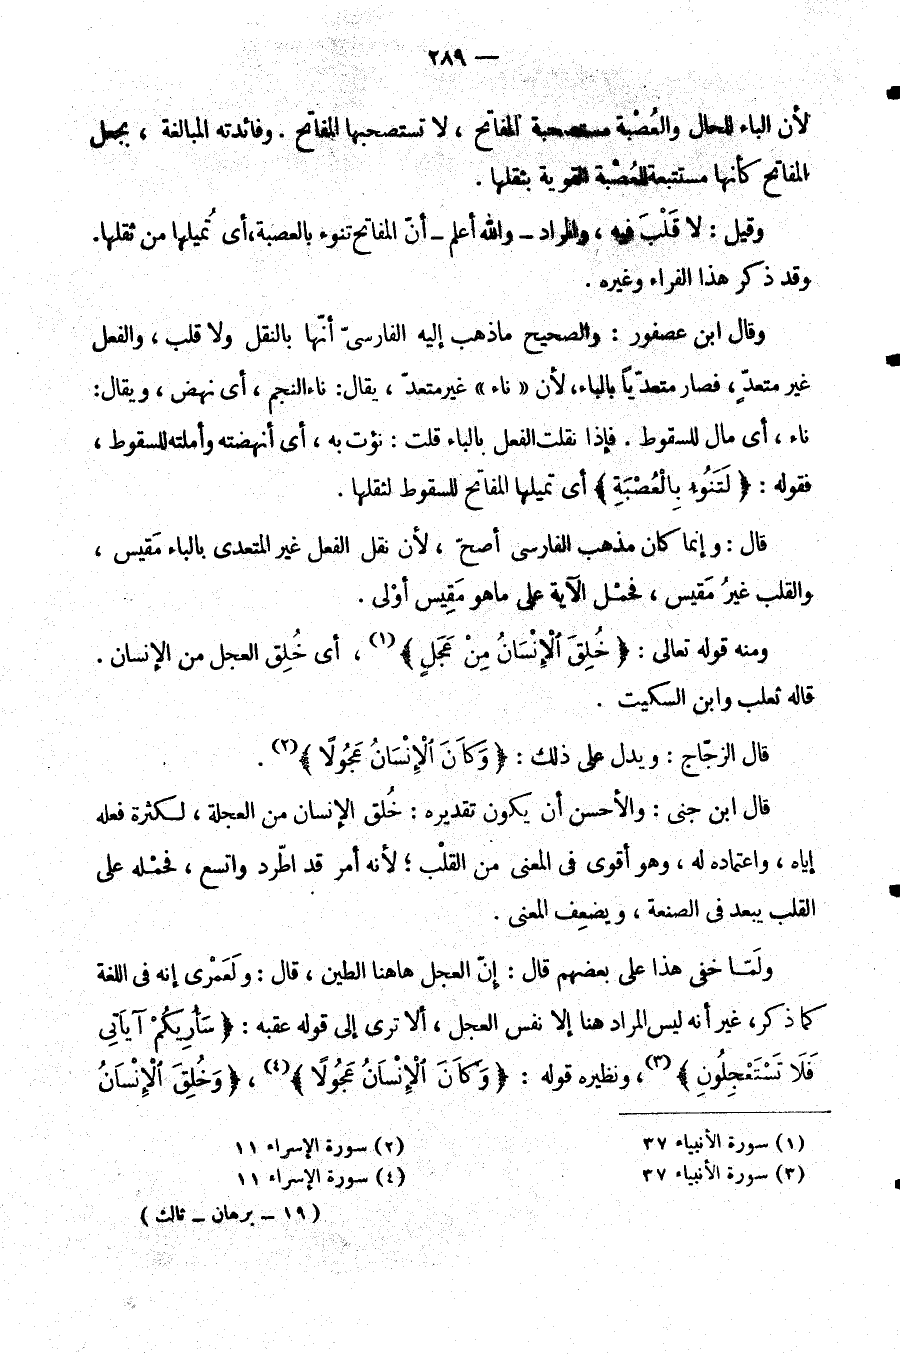 — ٢٨٩
لأن الباء للحال والعُصْبة مستصحبة المفاتح ، لا تستصحبها المفاتح . وفائدته المبالغة ، بجعل
المفاتح كأنها مستتبعة للعُصْبة القوية بثقلها .
وقيل : لا قَلْبَ فيه ، والمراد ــ والله أعلم ــ أنّ المفاتح تنوء بالعصبة، أى تُميلها من ثقلها.
وقد ذكر هذا الفراء وغيره .
وقال ابن عصفور : والصحيح ماذهب إليه الفارسىّ أنّها بالنقل ولا قلب ، والفعل
غير متعدّ، فصار متعدّياً بالباء، لأن « ناء » غيرمتعدّ ، يقال: ناءالنجم ، أى نهض ، ويقال:
ناء ، أى مال للسقوط . فإذا نقلت الفعل بالباء قلت : نؤت به ، أى أنهضته وأملته للسقوط ،
فقوله : ﴿ لَتَنُوءِ بِالْعُصْبَةِ ﴾ أى تميلها المفاتح للسقوط لثقلها .
قال : وإنما كان مذهب الفارسى أصحّ ، لأن نقل الفعل غير المتعدى بالباء مَقيس ،
والقلب غيرُ مَقيس ، فحمْل الآية على ماهو مَقِيس أوْلى .
ومنه قوله تعالى : ﴿ خُلِقَ ٱلْإِنْسَانُ مِنْ عَجَلٍ ﴾(١) ، أى خُلِق العجل من الإنسان .
قاله ثعلب وابن السكيت .
قال الزجّاج : ويدل على ذلك : ﴿ وَكَانَ ٱلْإِنْسَانُ عَجُولًا ﴾(٢) .
قال ابن جنى : والأحسن أن يكون تقديره : خُلق الإنسان من العجلة ، لكثرة فعله
إياه ، واعتماده له ، وهو أقوى فى المعنى من القلْب ؛ لأنه أمر قد اطّرد واتسع ، فحمْله على
القلب يبعد فى الصنعة ، ويضعِف المعنى .
ولَمّا خفى هذا على بعضهم قال : إنّ العجل هاهنا الطين ، قال : ولَعَمْرى إنه فى اللغة
كما ذكر، غير أنه ليس المراد هنا إلا نفس العجل ، ألا ترى إلى قوله عقبه : ﴿ سَأُرِيكُمْ آيَاتِى
فَلَا تَسْتَعْجِلُونِ ﴾(٣)، ونظيره قوله : ﴿ وَكَانَ ٱلْإِنْسَانُ عَجُولًا ﴾(٤) ، ﴿ وَخُلِقَ ٱلْإِنْسَانُ
(١) سورة الأنبياء ٣٧ (٢) سورة الإسراء ١١
(٣) سورة الأنبياء ٣٧ (٤) سورة الإسراء ١١
( ١٩ ــ برهان ــ ثالث )